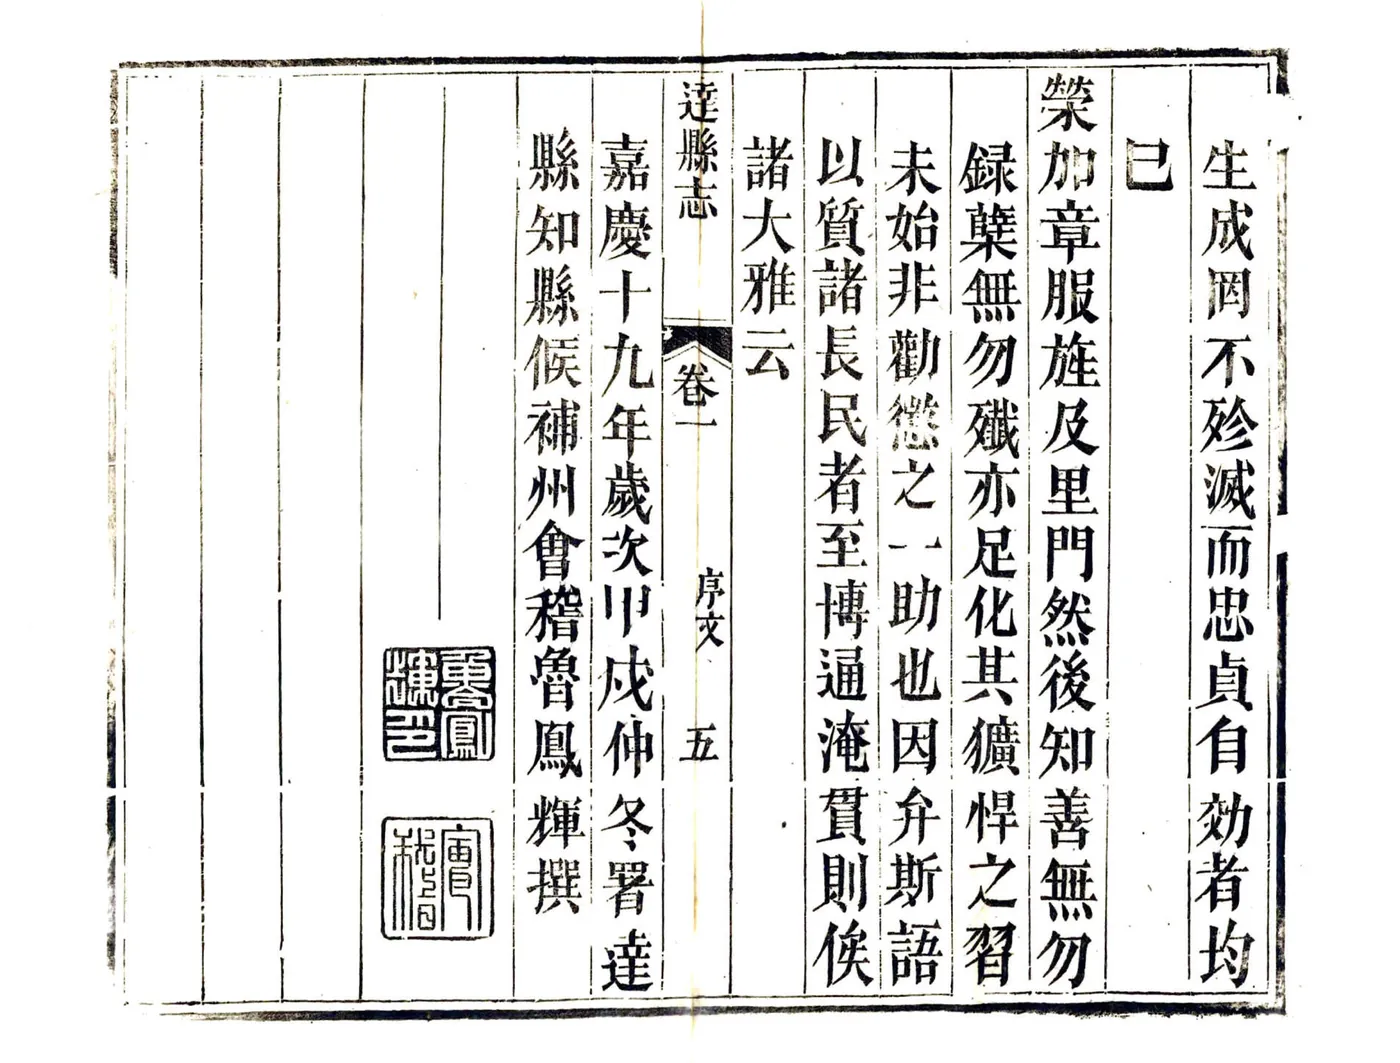 生成罔不殄滅而忠貞自効者均
已
榮加章服旌及里門然後知善無勿
録孽無勿殲亦足化其獷悍之習
未始非勸懲之一助也因弁斯語
以質諸長民者至博通淹貫則俟
諸大雅云
達縣志
卷一
序文
五
嘉慶十九年歲次甲戌仲冬署達
縣知縣候補州會稽魯鳳輝撰
魯鳳輝印